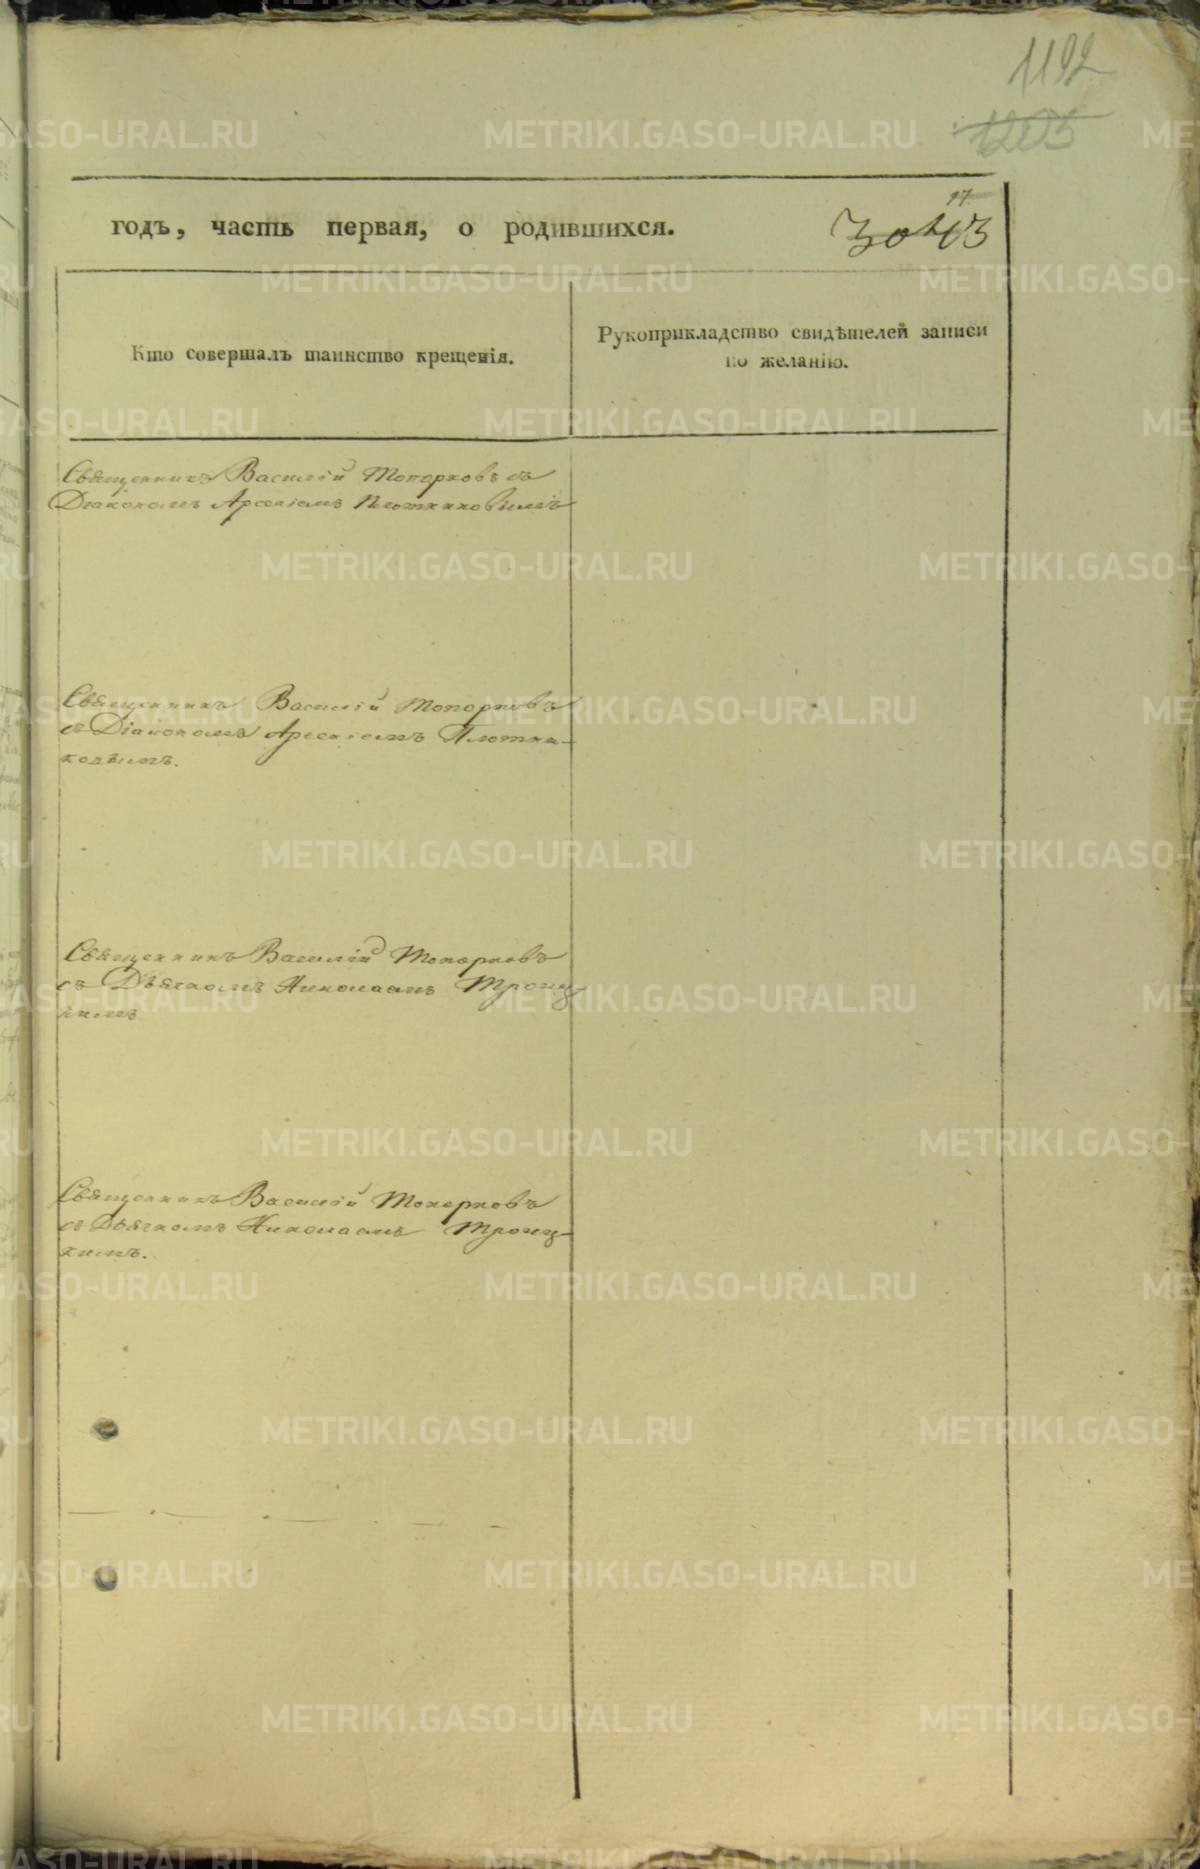 1192
1205
годъ, часть первая, о родившихся.
17.
Кто совершалъ таинство крещенія.
Рукоприкладство свидѣтелей записи
по желанію.
Священникъ Василій Топорковъ съ
Діакономъ Арсеніемъ Плотниковымъ
Священникъ Василій Топорковъ
съ Діакономъ Арсеніемъ Плотни-
ковымъ.
Священникъ Василій Топорковъ
съ Дьячкомъ Николаемъ Троиц
кимъ
Священникъ Василій Топорковъ
съ Дьячкомъ Николаемъ Троиц-
кимъ.
METRIKI.GASO-URAL.RU